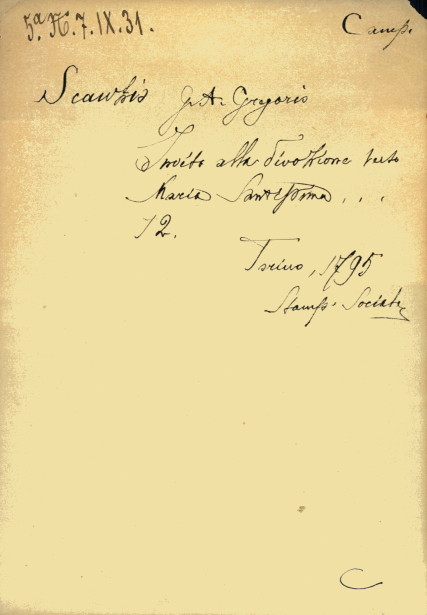 5.ª N. 7. IX. 31.
Camp.
Gregorio
Invito alla divozione verso
Maria Santissima . . .
12.
Torino, 1795
Stamp. Sociale
C